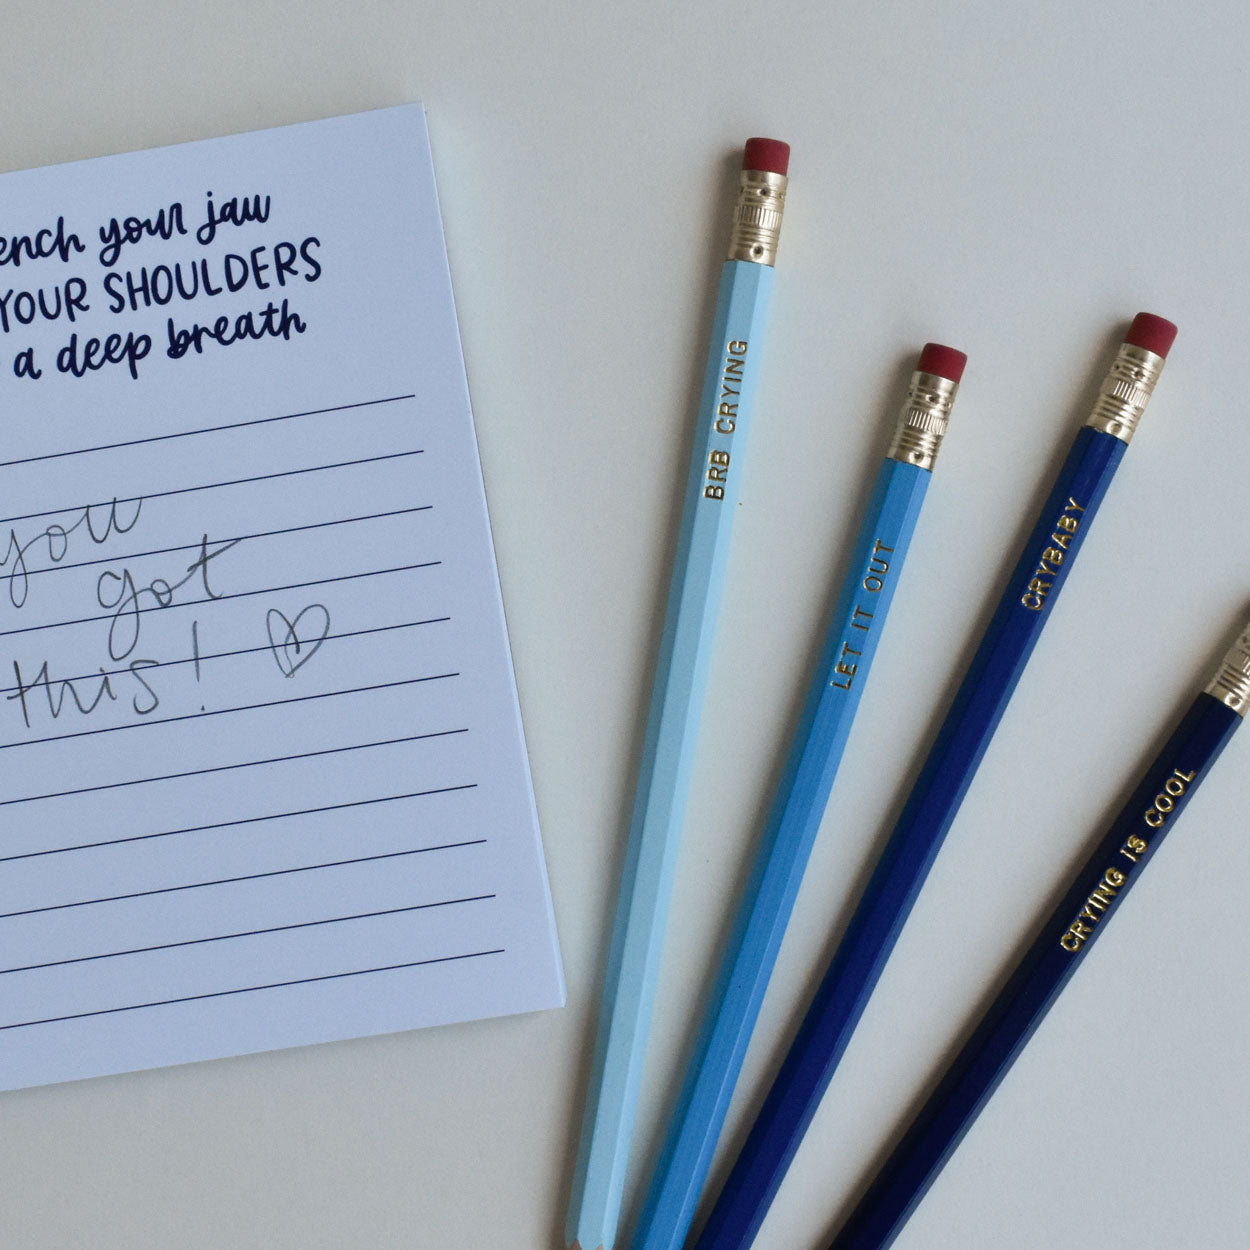 your jaw
YOUR SHOULDERS
a deep breath
you
got
this!
BRB CRYING
LET IT OUT
CRYBABY
CRYING IS COOL